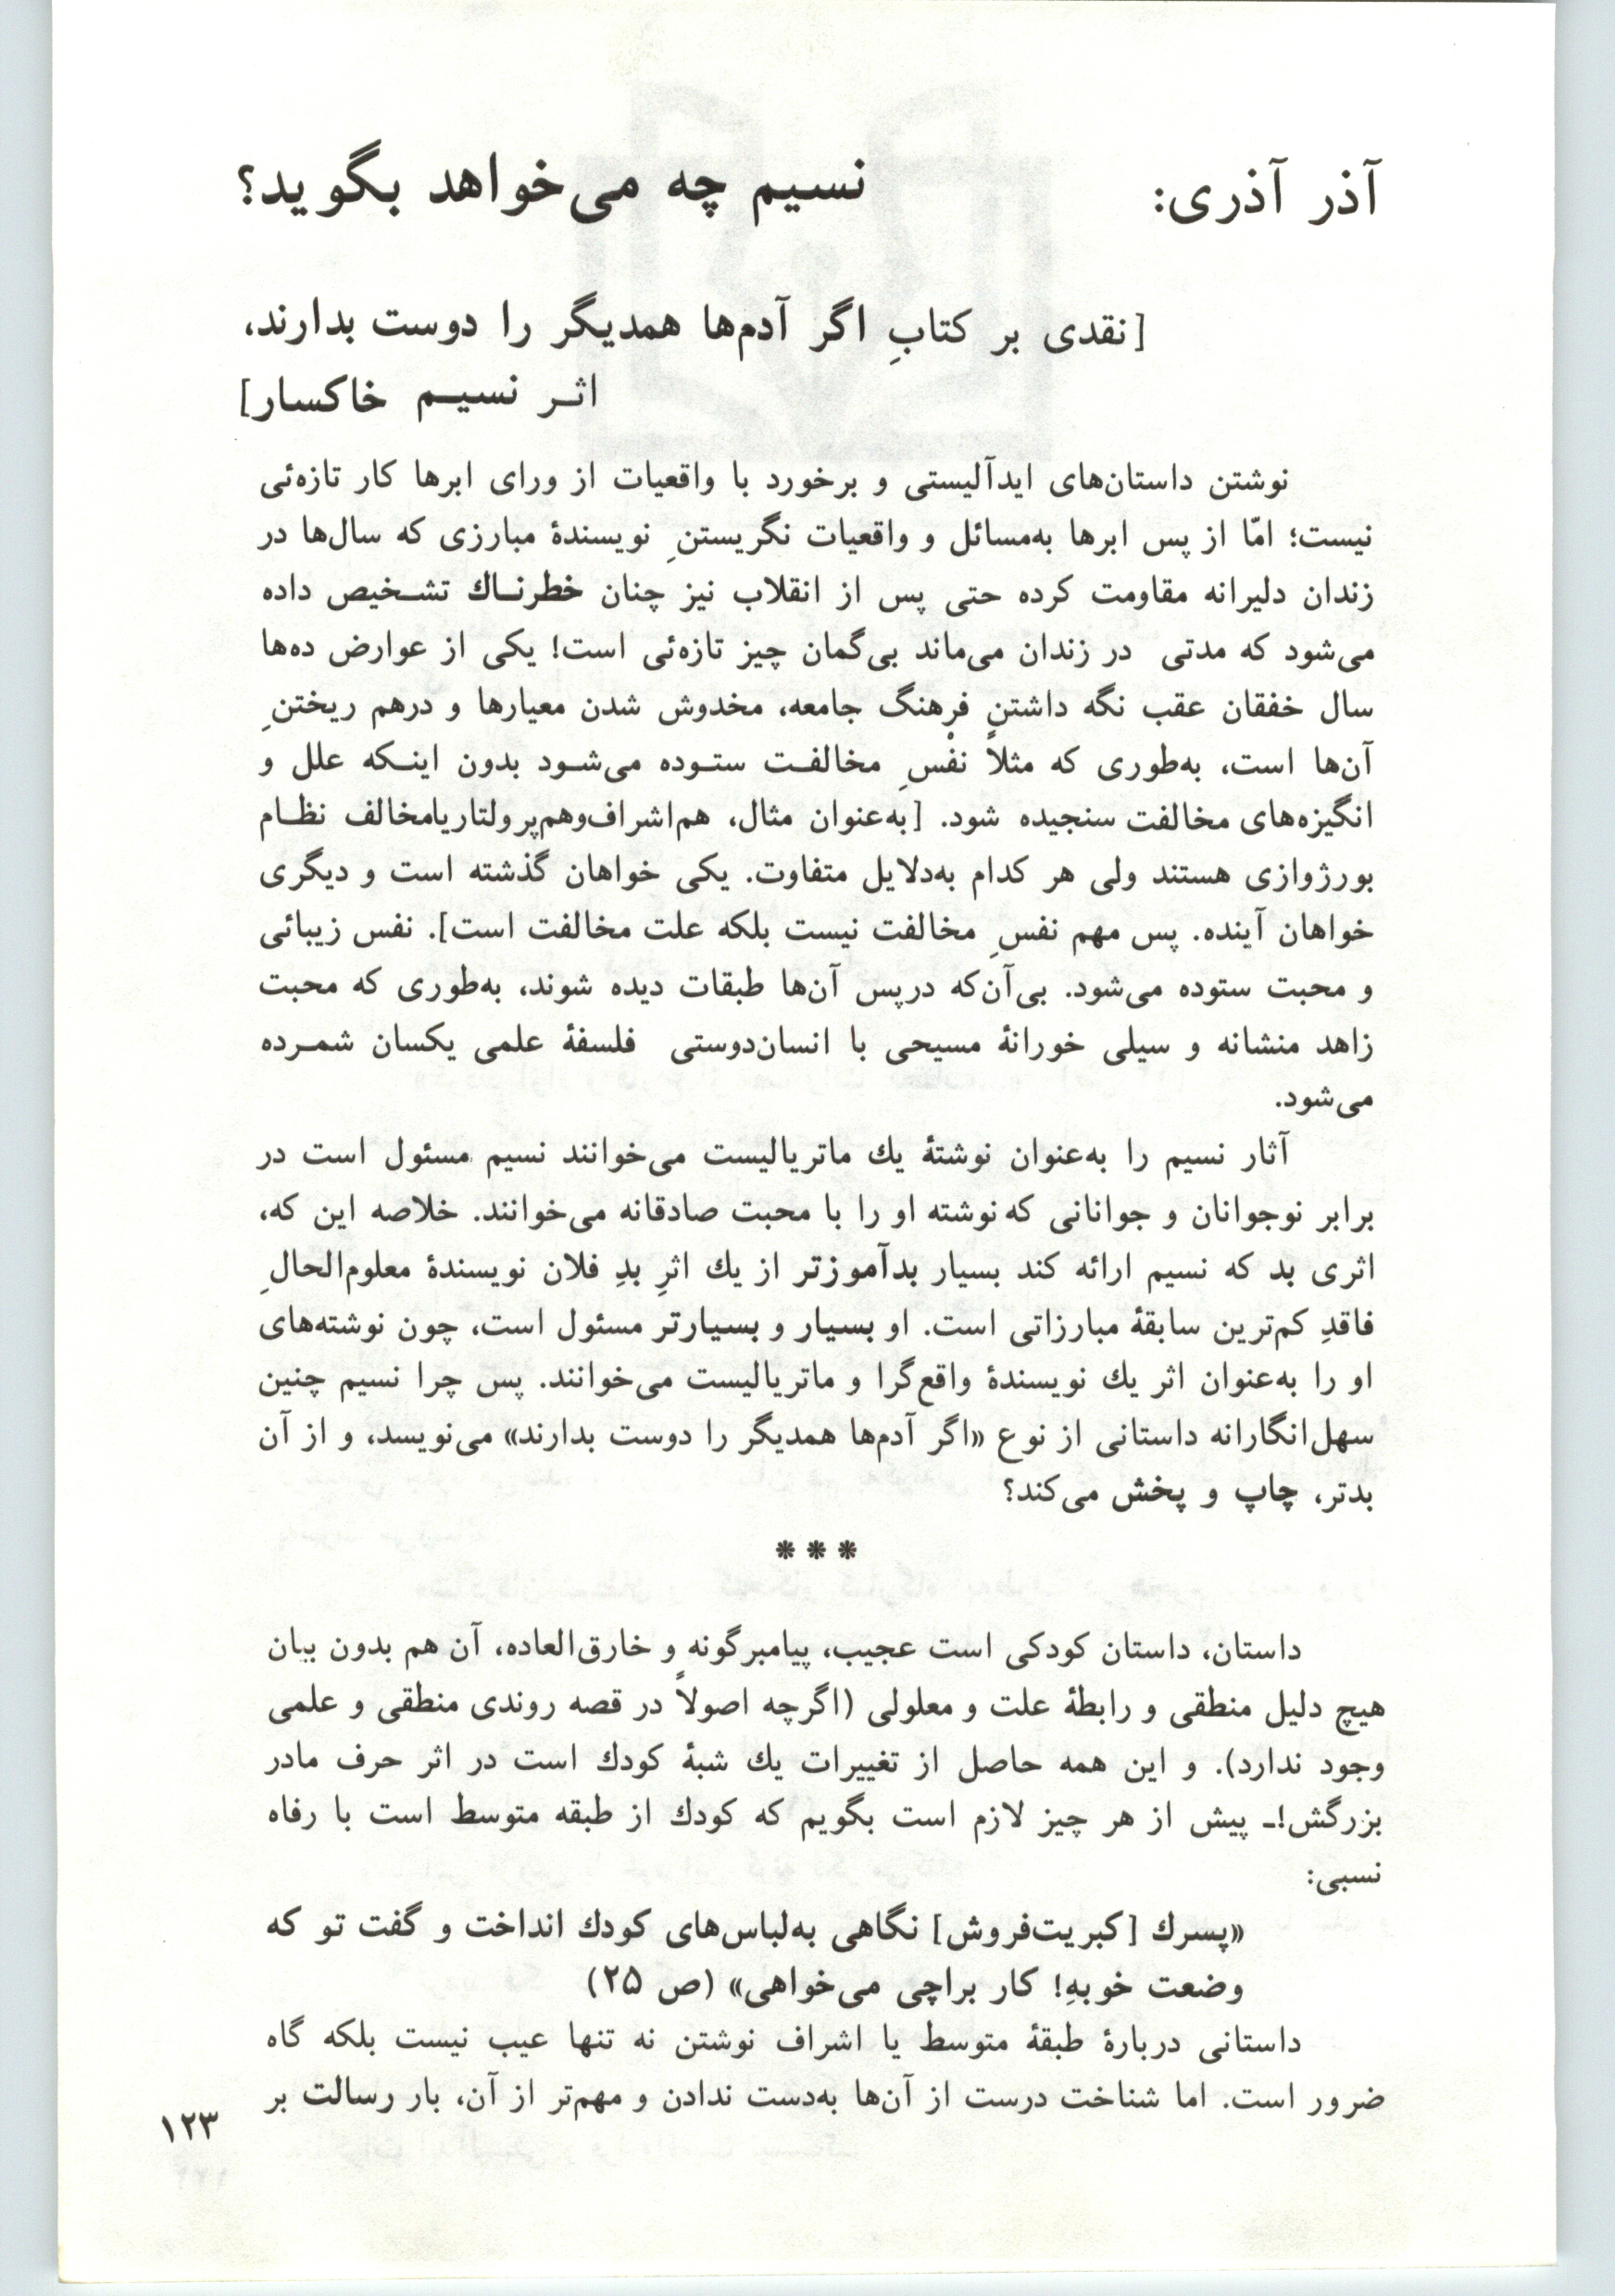 آذر آذری: نسیم چه می‌خواهد بگوید؟
[نقدی بر کتابِ اگر آدم‌ها همدیگر را دوست بدارند،
اثر نسیم خاکسار]
نوشتن داستان‌های ایدآلیستی و برخورد با واقعیات از ورای ابرها کار تازه‌ئی
نیست؛ امّا از پس ابرها به‌مسائل و واقعیات نگریستنِ نویسندهٔ مبارزی که سال‌ها در
زندان دلیرانه مقاومت کرده حتی پس از انقلاب نیز چنان خطرناك تشخیص داده
می‌شود که مدتی در زندان می‌ماند بی‌گمان چیز تازه‌ئی است! یکی از عوارض ده‌ها
سال خفقان عقب نگه داشتنِ فرهنگ جامعه، مخدوش شدن معیارها و درهم ریختنِ
آن‌ها است، به‌طوری که مثلاً نفْسِ مخالفت ستوده می‌شود بدون اینکه علل و
انگیزه‌های مخالفت سنجیده شود. [به‌عنوان مثال، هم‌اشراف‌وهم‌پرولتاریامخالف نظام
بورژوازی هستند ولی هر کدام به‌دلایل متفاوت. یکی خواهان گذشته است و دیگری
خواهان آینده. پس مهم نفسِ مخالفت نیست بلکه علت مخالفت است]. نفس زیبائی
و محبت ستوده می‌شود. بی‌آن‌که درپس آن‌ها طبقات دیده شوند، به‌طوری که محبت
زاهد منشانه و سیلی خورانهٔ مسیحی با انسان‌دوستی فلسفهٔ علمی یکسان شمرده
می‌شود.
آثار نسیم را به‌عنوان نوشتهٔ یك ماتریالیست می‌خوانند نسیم مسئول است در
برابر نوجوانان و جوانانی که نوشته او را با محبت صادقانه می‌خوانند. خلاصه این که،
اثری بد که نسیم ارائه کند بسیار بدآموزتر از یك اثرِ بدِ فلان نویسندهٔ معلوم‌الحالِ
فاقدِ کم‌ترین سابقهٔ مبارزاتی است. او بسیار و بسیارتر مسئول است، چون نوشته‌های
او را به‌عنوان اثر یك نویسندهٔ واقع‌گرا و ماتریالیست می‌خوانند. پس چرا نسیم چنین
سهل‌انگارانه داستانی از نوع «اگر آدم‌ها همدیگر را دوست بدارند» می‌نویسد، و از آن
بدتر، چاپ و پخش می‌کند؟
* * *
داستان، داستان کودکی است عجیب، پیامبرگونه و خارق‌العاده، آن هم بدون بیان
هیچ دلیل منطقی و رابطهٔ علت و معلولی (اگرچه اصولاً در قصه روندی منطقی و علمی
وجود ندارد). و این همه حاصل از تغییرات یك شبهٔ کودك است در اثر حرف مادر
بزرگش!ـ پیش از هر چیز لازم است بگویم که کودك از طبقه متوسط است با رفاه
نسبی:
«پسرك [کبریت‌فروش] نگاهی به‌لباس‌های کودك انداخت و گفت تو که
وضعت خوبهِ! کار براچی می‌خواهی» (ص ۲۵)
داستانی دربارهٔ طبقهٔ متوسط یا اشراف نوشتن نه تنها عیب نیست بلکه گاه
ضرور است. اما شناخت درست از آن‌ها به‌دست ندادن و مهم‌تر از آن، بار رسالت بر
۱۲۳